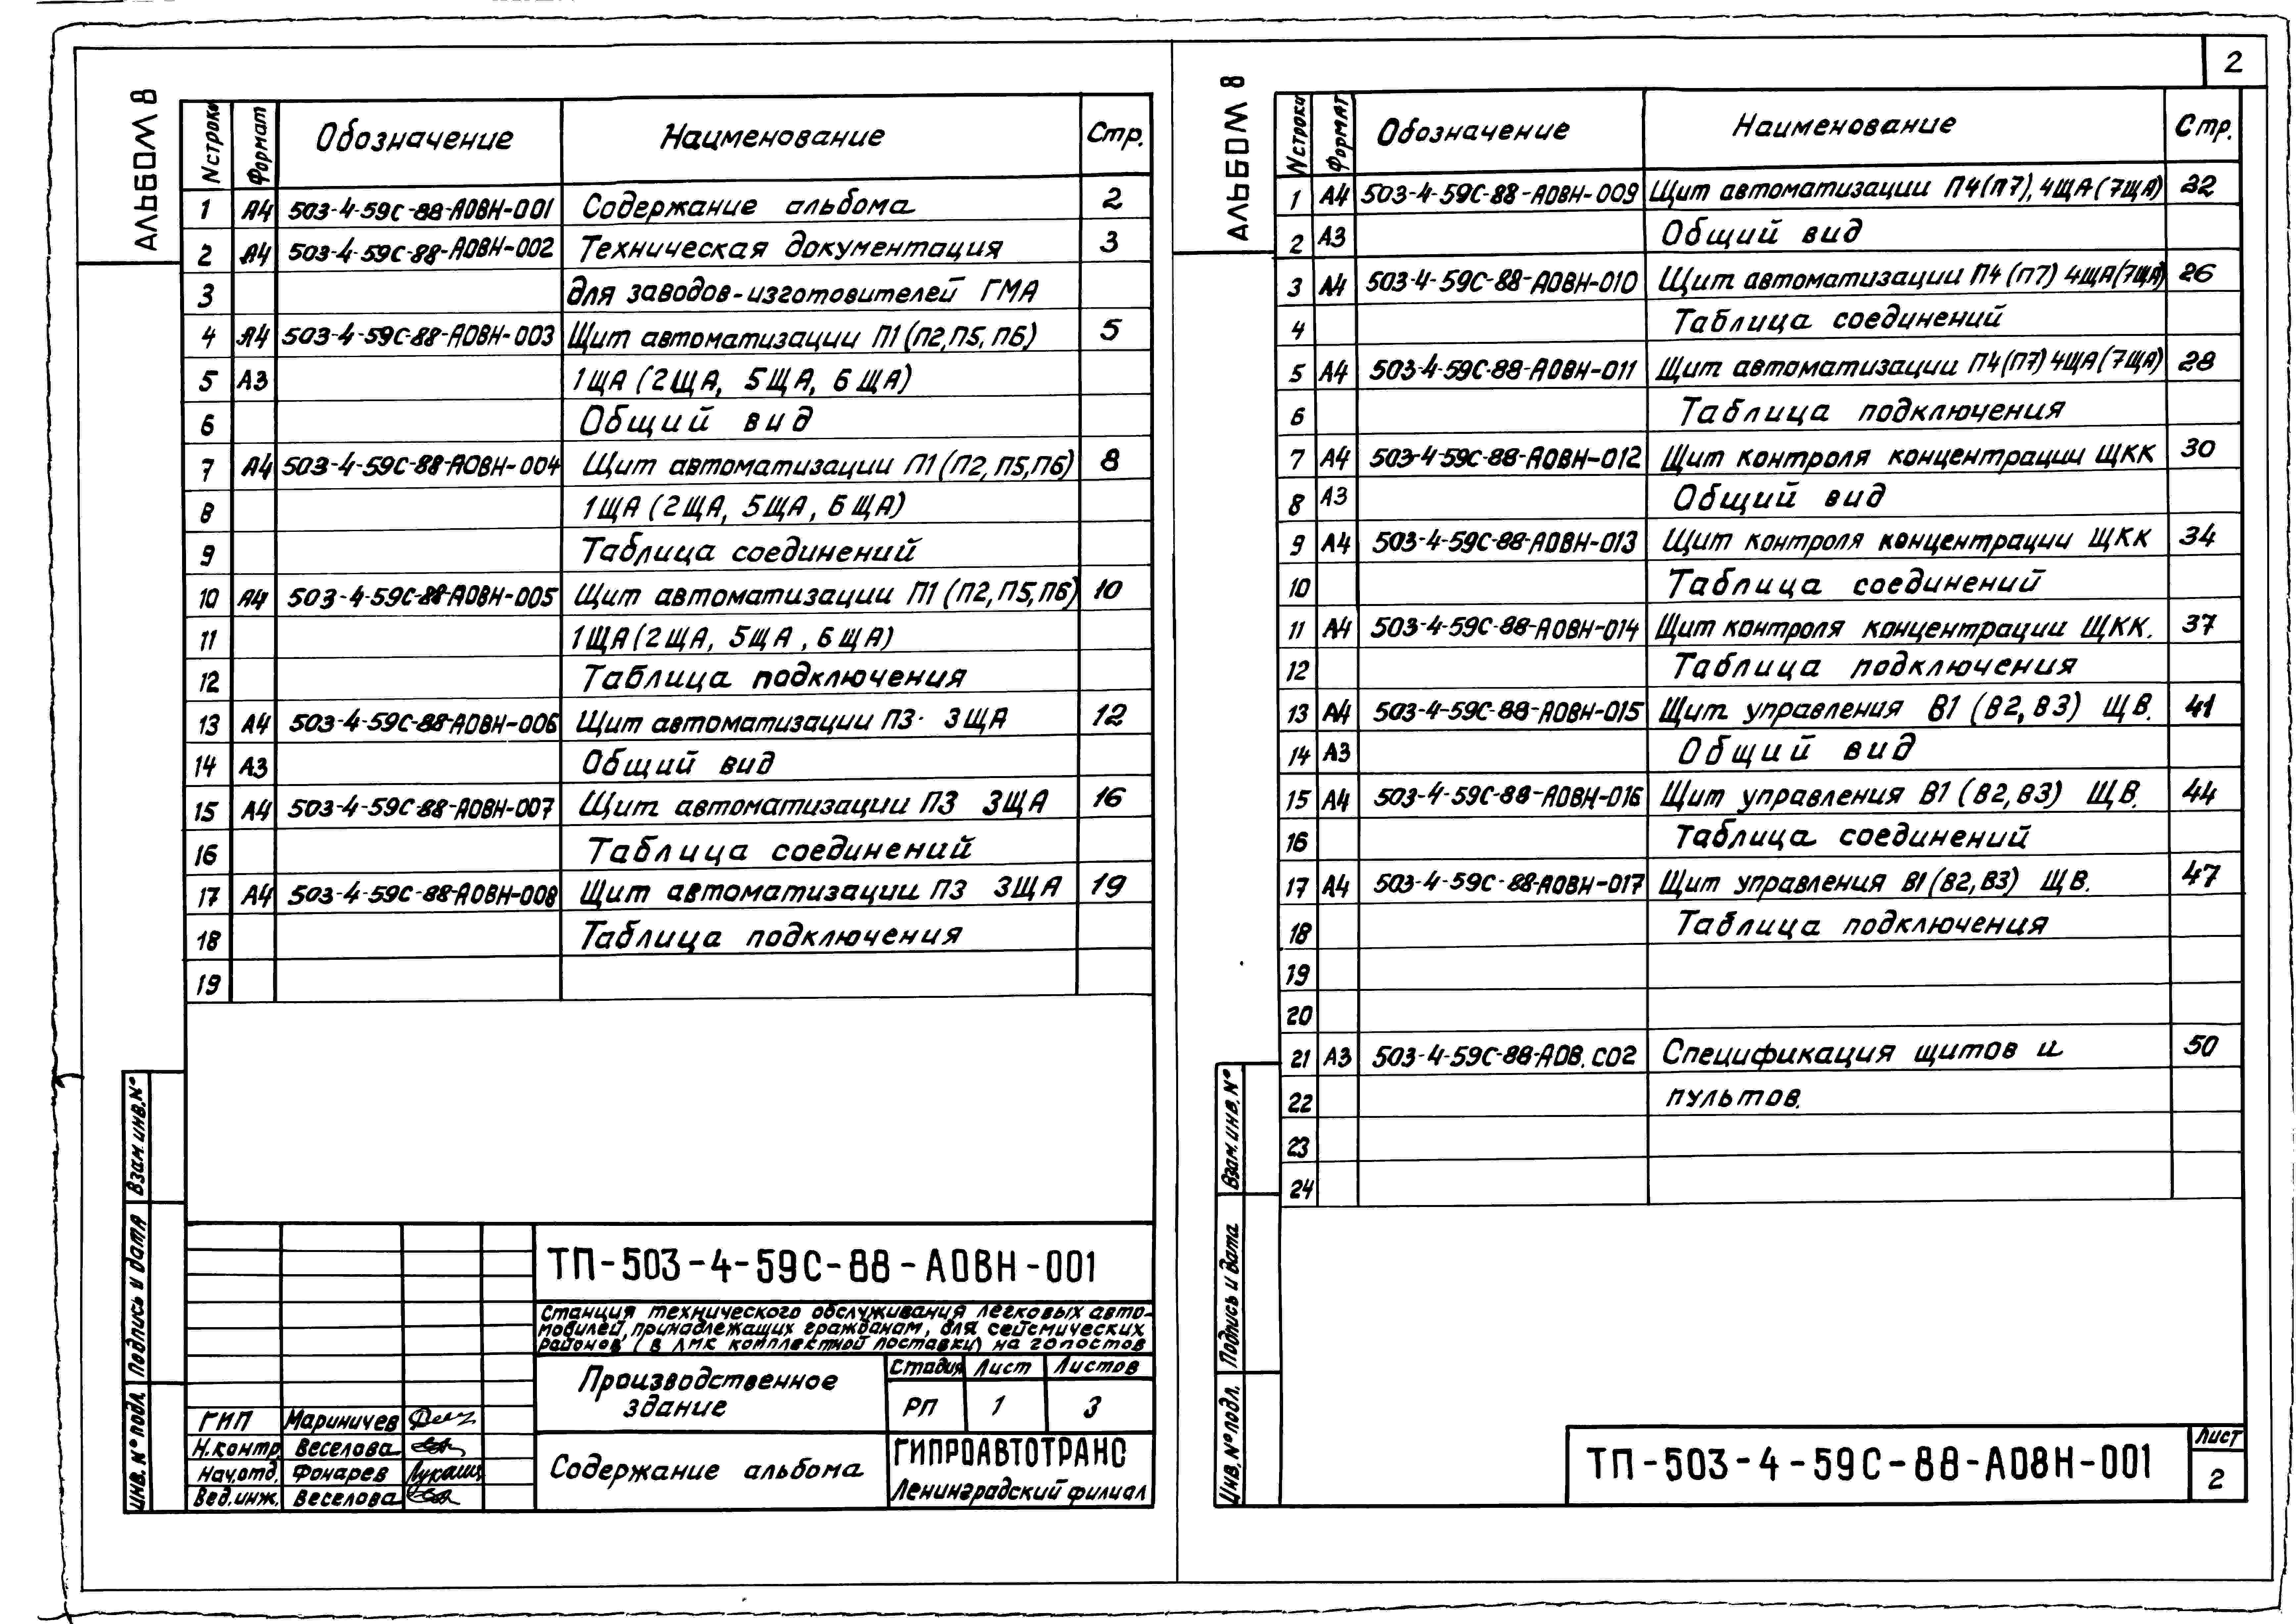 2
АЛЬБОМ 8
Nстроки Формат Обозначение Наименование Стр.
1 А4 503-4-59С-88-АОВН-001 Содержание альбома 2
2 А4 503-4-59С-88-АОВН-002 Техническая документация 3
3 для заводов-изготовителей ГМА
4 А4 503-4-59С-88-АОВН-003 Щит автоматизации П1 (П2, П5, П6) 5
5 А3 1ЩА (2ЩА, 5ЩА, 6ЩА)
6 Общий вид
7 А4 503-4-59С-88-АОВН-004 Щит автоматизации П1 (П2, П5, П6) 8
8 1ЩА (2ЩА, 5ЩА, 6ЩА)
9 Таблица соединений
10 А4 503-4-59С-88-АОВН-005 Щит автоматизации П1 (П2, П5, П6) 10
11 1ЩА (2ЩА, 5ЩА, 6ЩА)
12 Таблица подключения
13 А4 503-4-59С-88-АОВН-006 Щит автоматизации П3. 3ЩА 12
14 А3 Общий вид
15 А4 503-4-59С-88-АОВН-007 Щит автоматизации П3 3ЩА 16
16 Таблица соединений
17 А4 503-4-59С-88-АОВН-008 Щит автоматизации П3 3ЩА 19
18 Таблица подключения
19
Взам. инв. №
Подпись и дата
Инв. № подл.
ТП-503-4-59С-88-АОВН-001
Станция технического обслуживания легковых авто-
мобилей, принадлежащих гражданам, для сейсмических
районов (в ЛМК комплектной поставки) на 20 постов
Производственное
здание
Стадия Лист Листов
РП 1 3
ГИП Мариничев
Н.контр. Веселова
Нач.отд. Фонарев
Вед.инж. Веселова
Содержание альбома
ГИПРОАВТОТРАНС
Ленинградский филиал
АЛЬБОМ 8
Nстроки ФОРМАТ Обозначение Наименование Стр.
1 А4 503-4-59С-88-АОВН-009 Щит автоматизации П4 (П7), 4ЩА (7ЩА) 22
2 А3 Общий вид
3 А4 503-4-59С-88-АОВН-010 Щит автоматизации П4 (П7) 4ЩА (7ЩА) 26
4 Таблица соединений
5 А4 503-4-59С-88-АОВН-011 Щит автоматизации П4 (П7) 4ЩА (7ЩА) 28
6 Таблица подключения
7 А4 503-4-59С-88-АОВН-012 Щит контроля концентрации ЩКК 30
8 А3 Общий вид
9 А4 503-4-59С-88-АОВН-013 Щит контроля концентрации ЩКК 34
10 Таблица соединений
11 А4 503-4-59С-88-АОВН-014 Щит контроля концентрации ЩКК. 37
12 Таблица подключения
13 А4 503-4-59С-88-АОВН-015 Щит управления В1 (В2, В3) ЩВ. 41
14 А3 Общий вид
15 А4 503-4-59С-88-АОВН-016 Щит управления В1 (В2, В3) ЩВ. 44
16 Таблица соединений
17 А4 503-4-59С-88-АОВН-017 Щит управления В1 (В2, В3) ЩВ. 47
18 Таблица подключения
19
20
21 А3 503-4-59С-88-АОВ.СО2 Спецификация щитов и 50
22 пультов.
23
24
Взам. инв. №
Подпись и дата
Инв. № подл.
ТП-503-4-59С-88-АОВН-001
Лист
2